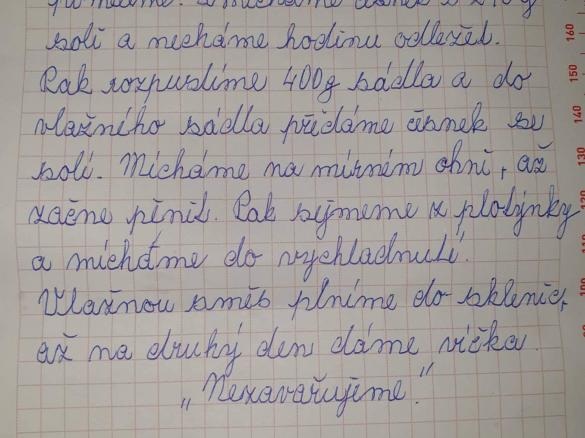 solí a necháme hodinu odležet.
Pak rozpustíme 400g sádla a do
vlažného sádla přidáme česnek se
solí. Mícháme na mírném ohni, až
začne pěnit. Pak sejmeme z plotýnky
a mícháme do vychladnutí.
Vlažnou směs plníme do sklenic,
až na druhý den dáme víčka.
„Nezavařujeme."
160
150
140
130
120